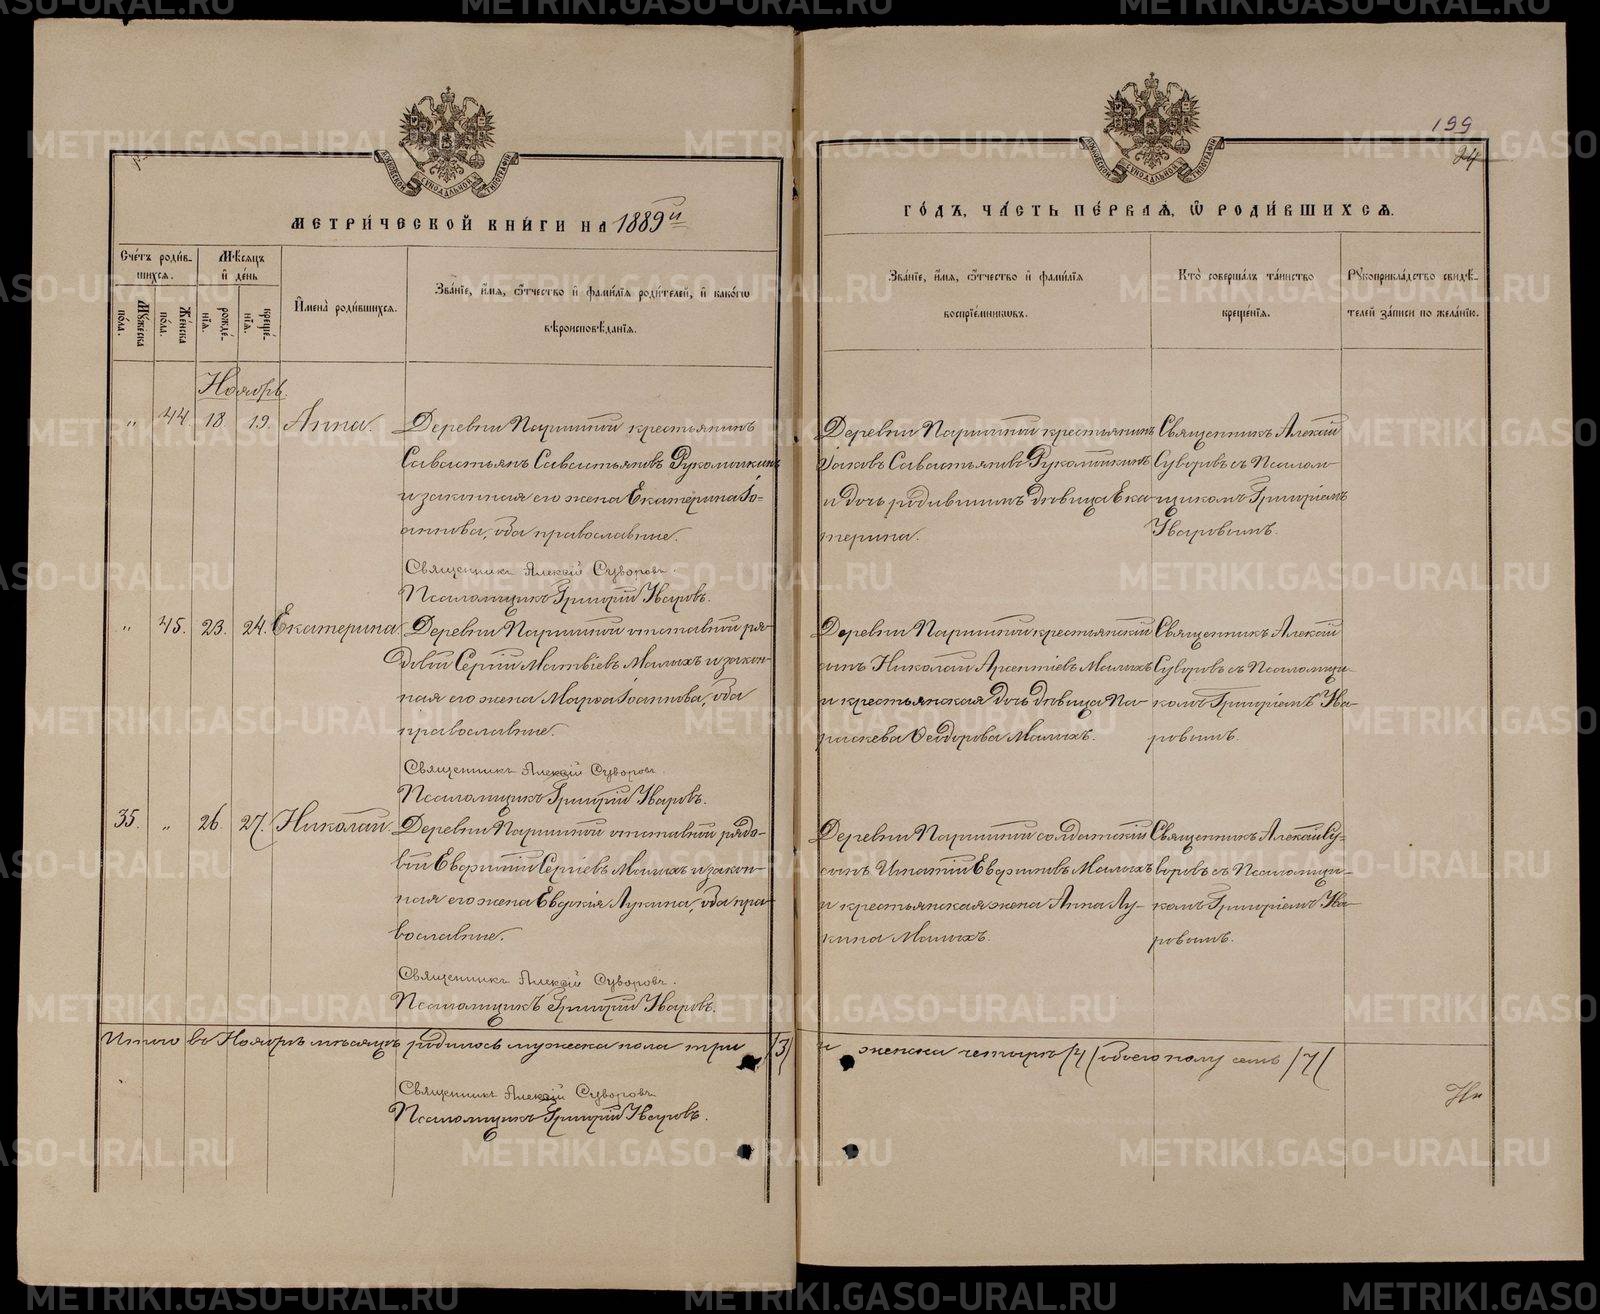 METRIKI.GASO-URAL.RU
199
24
МЕТРИЧЕСКОЙ КНИГИ НА 1889й
ГОДЪ, ЧАСТЬ ПЕРВАЯ, Ѡ РОДИВШИХСЯ.
Счетъ родив-
шихся.
Мужеска пола.
Женска пола.
Мѣсяцъ и день
рожде-
нія.
креще-
нія.
Имена родившихся.
Званіе, имя, отчество и фамилія родителей, и какогѡ
вѣроисповѣданія.
Званіе, имя, отчество и фамилія
воспріемниковъ.
Кто совершалъ таинство
крещенія.
Рукоприкладство свидѣ-
телей записи по желанію.
Ноябрь.
„ 44 18. 19. Анна.
Деревни Паршиной крестьянинъ
Савастьянъ Савастьяновъ Рукомойкинъ
и законная его жена Екатерина Іо-
аннова, оба православные.
Священникъ Алексій Суворовъ.
Псаломщикъ Григорій Уваровъ.
Деревни Паршиной крестьянинъ
Іаковъ Савастьяновъ Рукомойкинъ
и дочь родившимъ дѣвица Ека-
терина.
Священникъ Алексій
Суворовъ съ Псалом-
щикомъ Григоріемъ
Уваровымъ.
„ 45. 23. 24. Екатерина
Деревни Паршиной отставной ря-
довой Сергій Матвіевъ Малыхъ и закон-
ная его жена Марѳа Іоаннова, оба
православные.
Священникъ Алексій Суворовъ.
Псаломщикъ Григорій Уваровъ.
Деревни Паршиной крестьянскій
сынъ Николай Арсентіевъ Малыхъ
и крестьянская дочь дѣвица Па-
раскева Ѳеодорова Малыхъ.
Священникъ Алексій
Суворовъ съ Псаломщи-
комъ Григоріемъ Ува-
ровымъ.
35. „ 26. 27. Николай.
Деревни Паршиной отставной рядо-
вой Евфимій Сергіевъ Малыхъ и закон-
ная его жена Евдокія Лукина, оба пра-
вославные.
Священникъ Алексій Суворовъ.
Псаломщикъ Григорій Уваровъ.
Деревни Паршиной солдатскій
сынъ Ипатій Евфимовъ Малыхъ
и крестьянская жена Анна Лу-
кина Малыхъ.
Священникъ Алексій Су-
воровъ съ Псаломщи-
комъ Григоріемъ Ува-
ровымъ.
Итого въ Ноябрѣ мѣсяцѣ родилось мужеска пола три /3/
и женска четыре /4/ обоего полу семь /7/
Священникъ Алексій Суворовъ
Псаломщикъ Григорій Уваровъ.